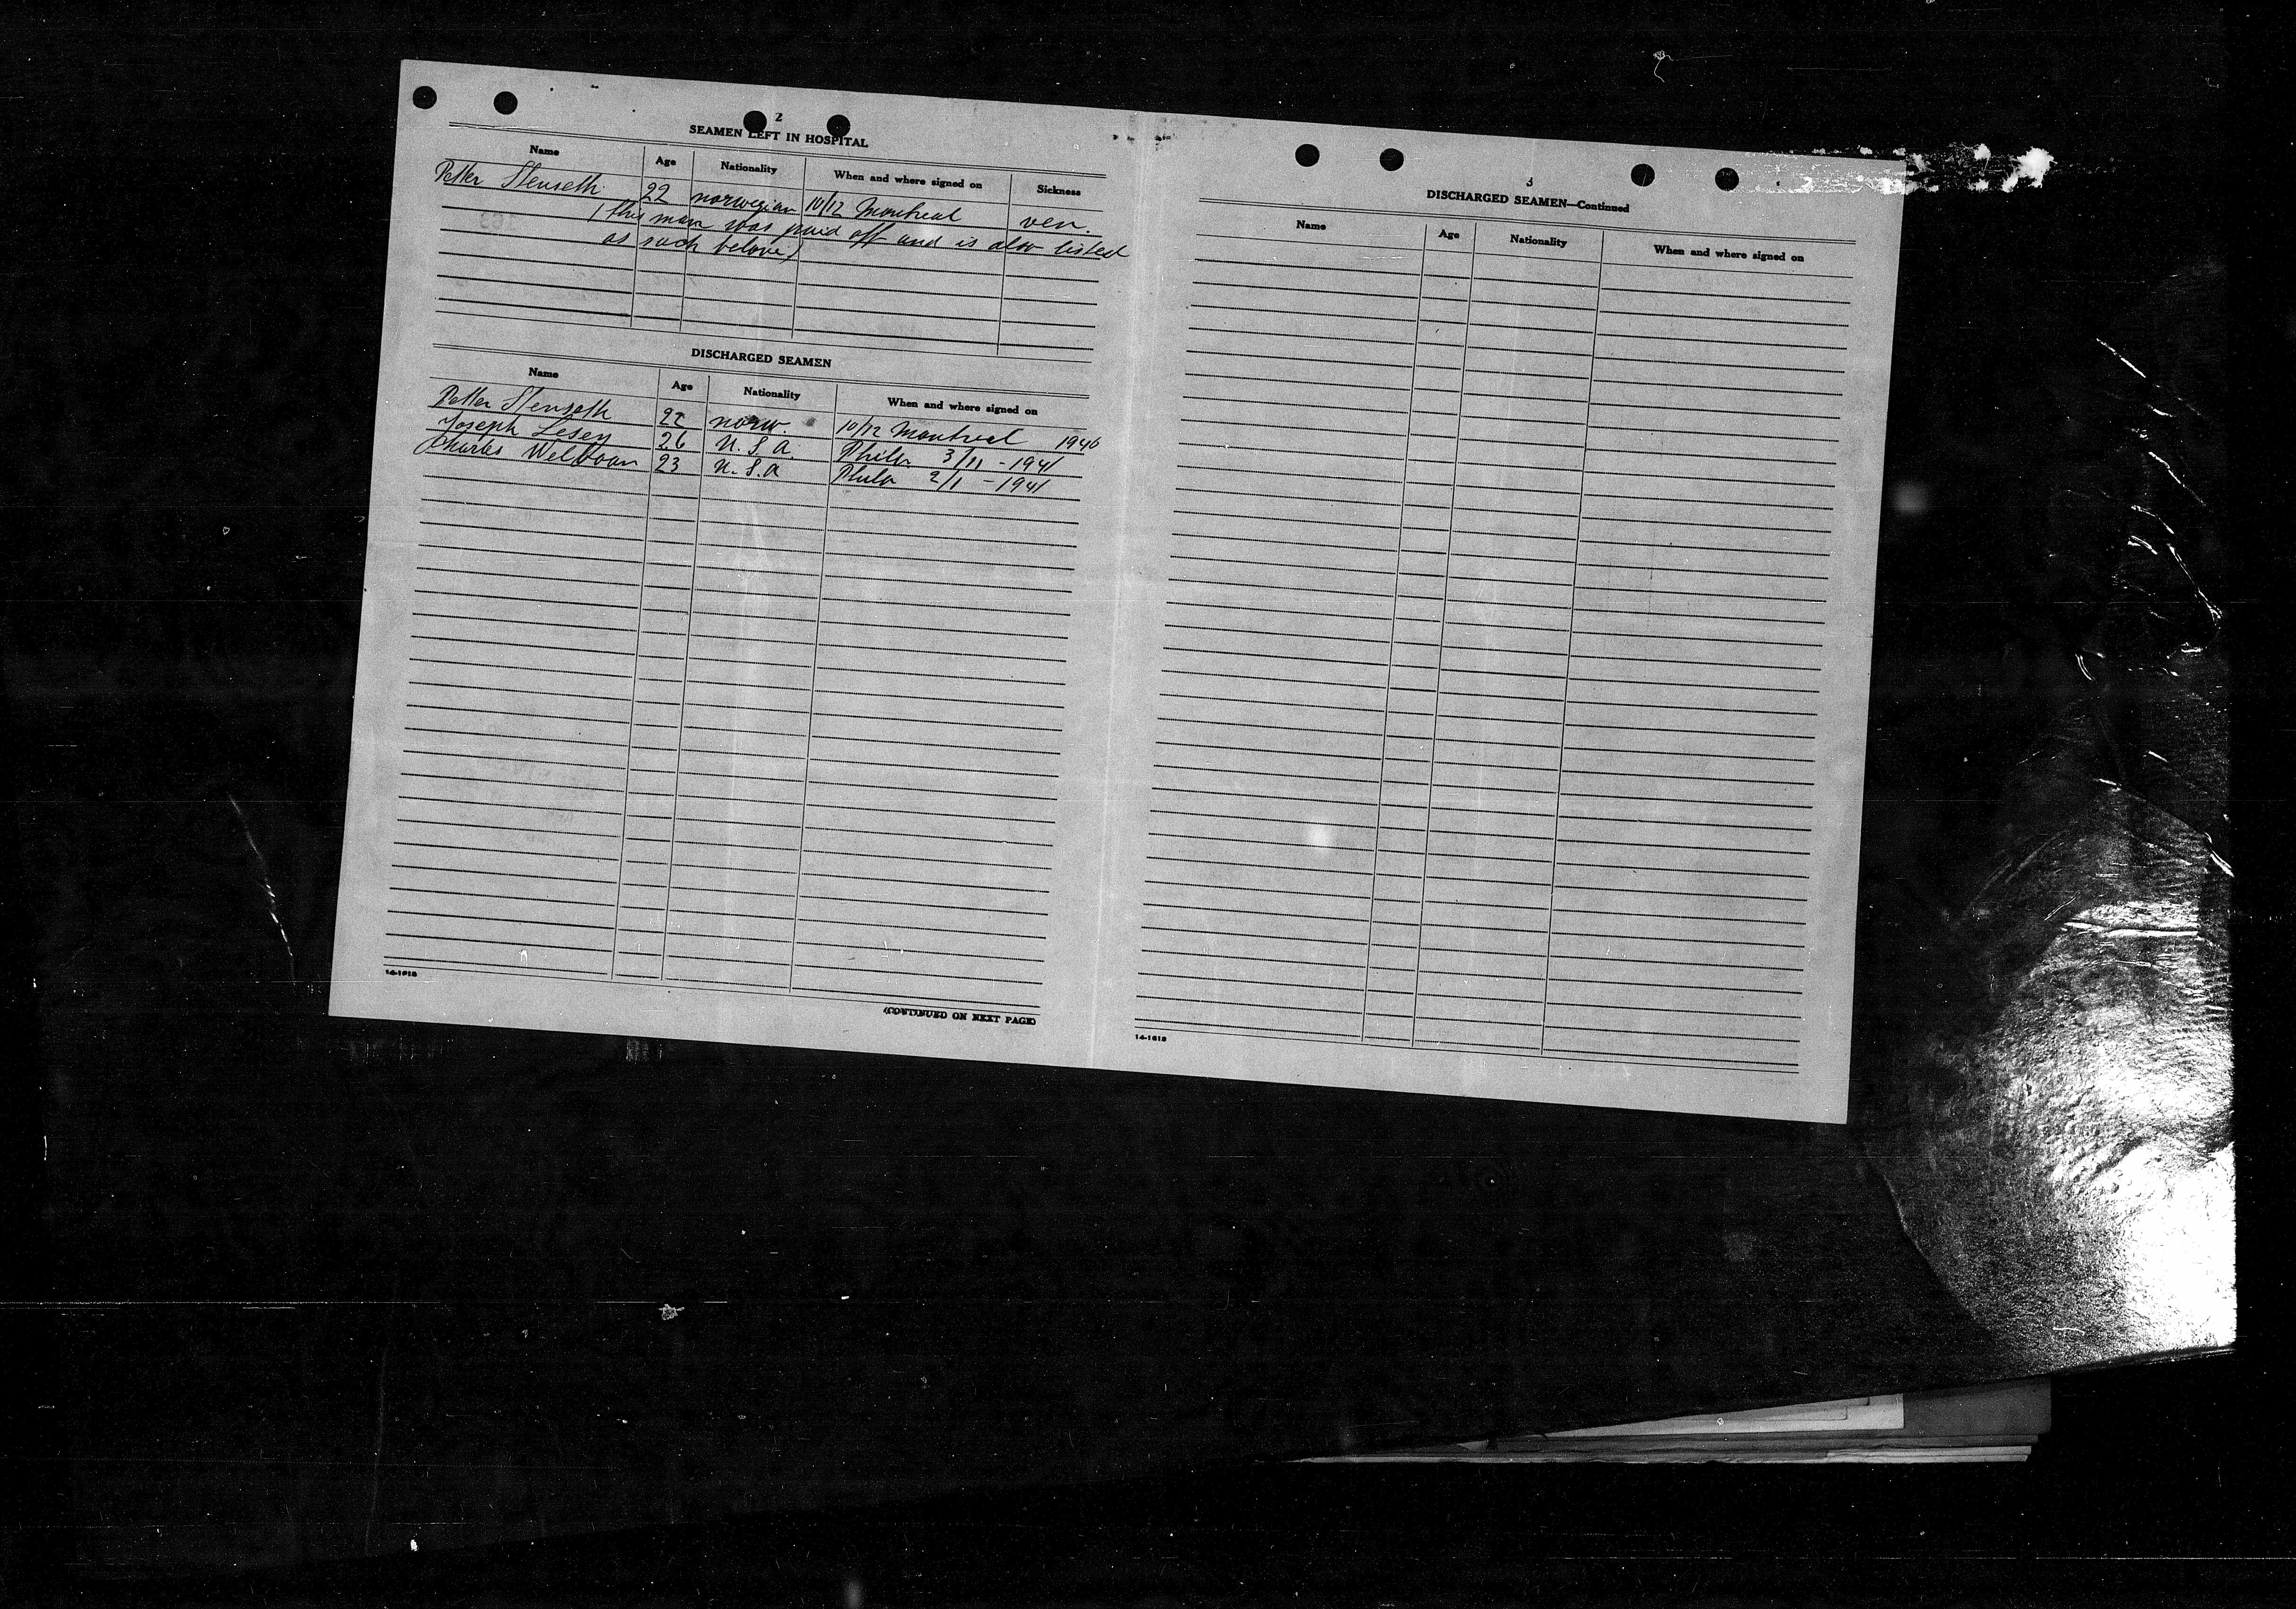 2
SEAMEN LEFT IN HOSPITAL
Name Age Nationality When and where signed on Sickness
Petter Stenseth 22 norwegian 10/12 Montreal ven.
(this man was paid off and is also listed
as such belove)
DISCHARGED SEAMEN
Name Age Nationality When and where signed on
Petter Stenseth 22 norw. 10/12 Montreal 1940
Joseph Lesey 26 U.S.A. Phila 3/11 - 1941
Charles 23 U.S.A Phila 2/1 - 1941
14-1618
(CONTINUED ON NEXT PAGE)
3
DISCHARGED SEAMEN—Continued
Name Age Nationality When and where signed on
14-1618